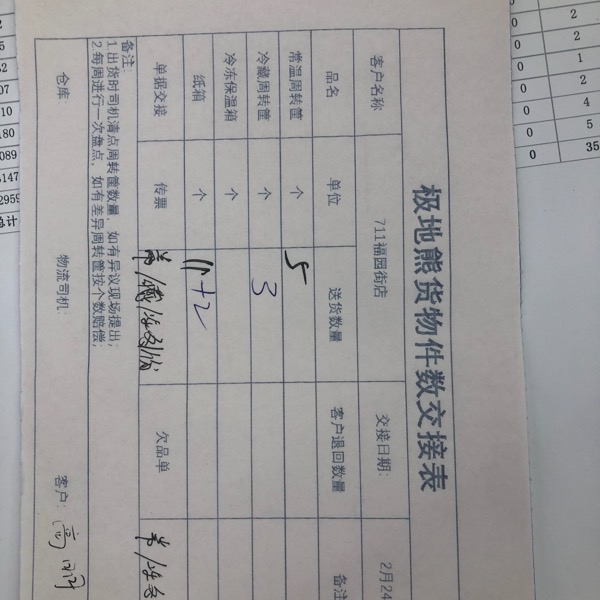 极地熊货物件数交接表
客户名称 711福园街店 交接日期: 2月24
品名 单位 送货数量 客户退回数量 备注
常温周转筐 个 5
冷藏周转筐 个 3
冷冻保温箱 个
纸箱 个 11+2
单据交接 传票 欠品单
备注:
1.出货时司机清点周转筐数量,如有异议现场提出;
2.每周进行一次盘点,如有差异周转筐按个数赔偿;
仓库: 物流司机: 客户:
2
0 2
0 1
0 2
0 2
0 4
0 5
0 35
52
07
10
180
089
147
2959
总计